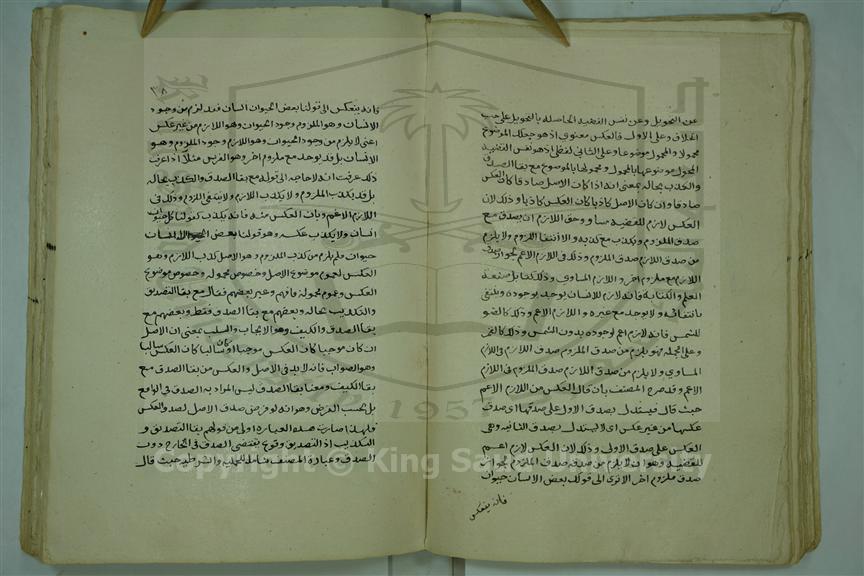 عن التحويل وعن نفس القضية الحاصلة بالتحويل على حسب
الخلاف وعلى الاول فالعكس معنوى اذ هو جعلك الموضوع
محمولا والمحمول موضوعا وعلى الثانى لفظى اذ هو نفس القضية
المحول موضوعها بالمحمول ومحمولها بالموضوع مع بقا الصدق
والكذب بحاله بمعنى انه اذا كان الاصل صادقا كان العكس
صادقا وان كان الاصل كاذبا كان العكس كاذبا وذلك لان
العكس لازم للقضية مساو وحق اللازم ان يصدق مع
صدق الملزوم ويكذب مع كذبه والا انتفا اللزوم ولا يلزم
من صدق اللازم صدق الملزوم وذلك فى اللازم الاعم لجواز صدق
اللازم مع ملزوم اخر واللازم المساوى وذلك كقابل صنعة
العلم والكتابة فانه لازم للانسان يوجد بوجوده وينتفى
بانتفائه ولا يوجد مع غيره واللازم الاعم وذلك كالضو
للشمس فانه لازم اعم لوجوده بدون الشمس وذلك كالقمر
وعلى الجملة فهو يلزم من صدق الملزوم صدق اللازم فى اللازم
المساوى ولا يلزم من صدق اللازم صدق الملزوم فى اللازم
الاعم وقد صرح المصنف بان قال العكس من اللازم الاعم
حيث قال فيستدل بصدق الاولى على صدقها اى صدق
عكسها من غير عكس اى لا يستدل بصدق الثانية وهى
العكس على صدق الاولى وذلك لان العكس لازم اعم
للقضية وهو ان لا يلزم من صدقه صدق الملزوم لجواز
صدق ملزوم اخر الا ترى الى قولك بعض الانسان حيوان
فانه ينعكس
٣٨
فانه ينعكس الى قولنا بعض الحيوان انسان فقد لزم من وجود
الانسان وهو الملزوم وجود الحيوان وهو اللازم من غير عكس
اعنى لا يلزم من وجود الحيوان وهو اللازم وجود الملزوم وهو
الانسان بل قد يوجد مع ملزوم اخر وهو الفرس مثلا اذا عرفت
ذلك عرفت انه لا حاجة الى قوله مع بقا الصدق والكذب بحاله
بل قد يكذب الملزوم ولا يكذب اللازم ولا ينتفى اللزوم وذلك فى
اللازم الاعم وبان العكس منه فانه يكذب كقولنا كل حيوان
انسان ولا يكذب عكسه وهو قولنا بعض الانسان
حيوان ولم يلزم من كذب الملزوم وهو الاصل كذب اللازم وهو
العكس لعموم موضوع الاصل وخصوص محموله وخصوص موضوع
العكس وعموم محموله فافهم وعبر بعضهم فقال مع بقا التصديق
والتكذيب بحاله وبعضهم مع بقا الصدق فقط وبعضهم مع
بقا الصدق والكيف وهو الايجاب والسلب بمعنى ان الاصل
ان كان موجبا كان العكس موجبا او كان سالبا كان العكس سالبا
وهو الصواب فانه لا بد فى الاصل والعكس من بقا الصدق مع
بقا الكيف ومعنا بقا الصدق ليس المراد به الصدق فى الواقع
بل بحسب الفرض وهو انه لو فرض صدق الاصل لصدق العكس
فلهذا صارت هذه العبارة اولى من قولهم بقا التصديق و
التكذيب اذ التصديق وقوع يقتضى الصدق فى الخارج دون
الصدق وعبارة المصنف شاملة للحملية والشرطية حيث قال
Copyright © King Saud University
1957